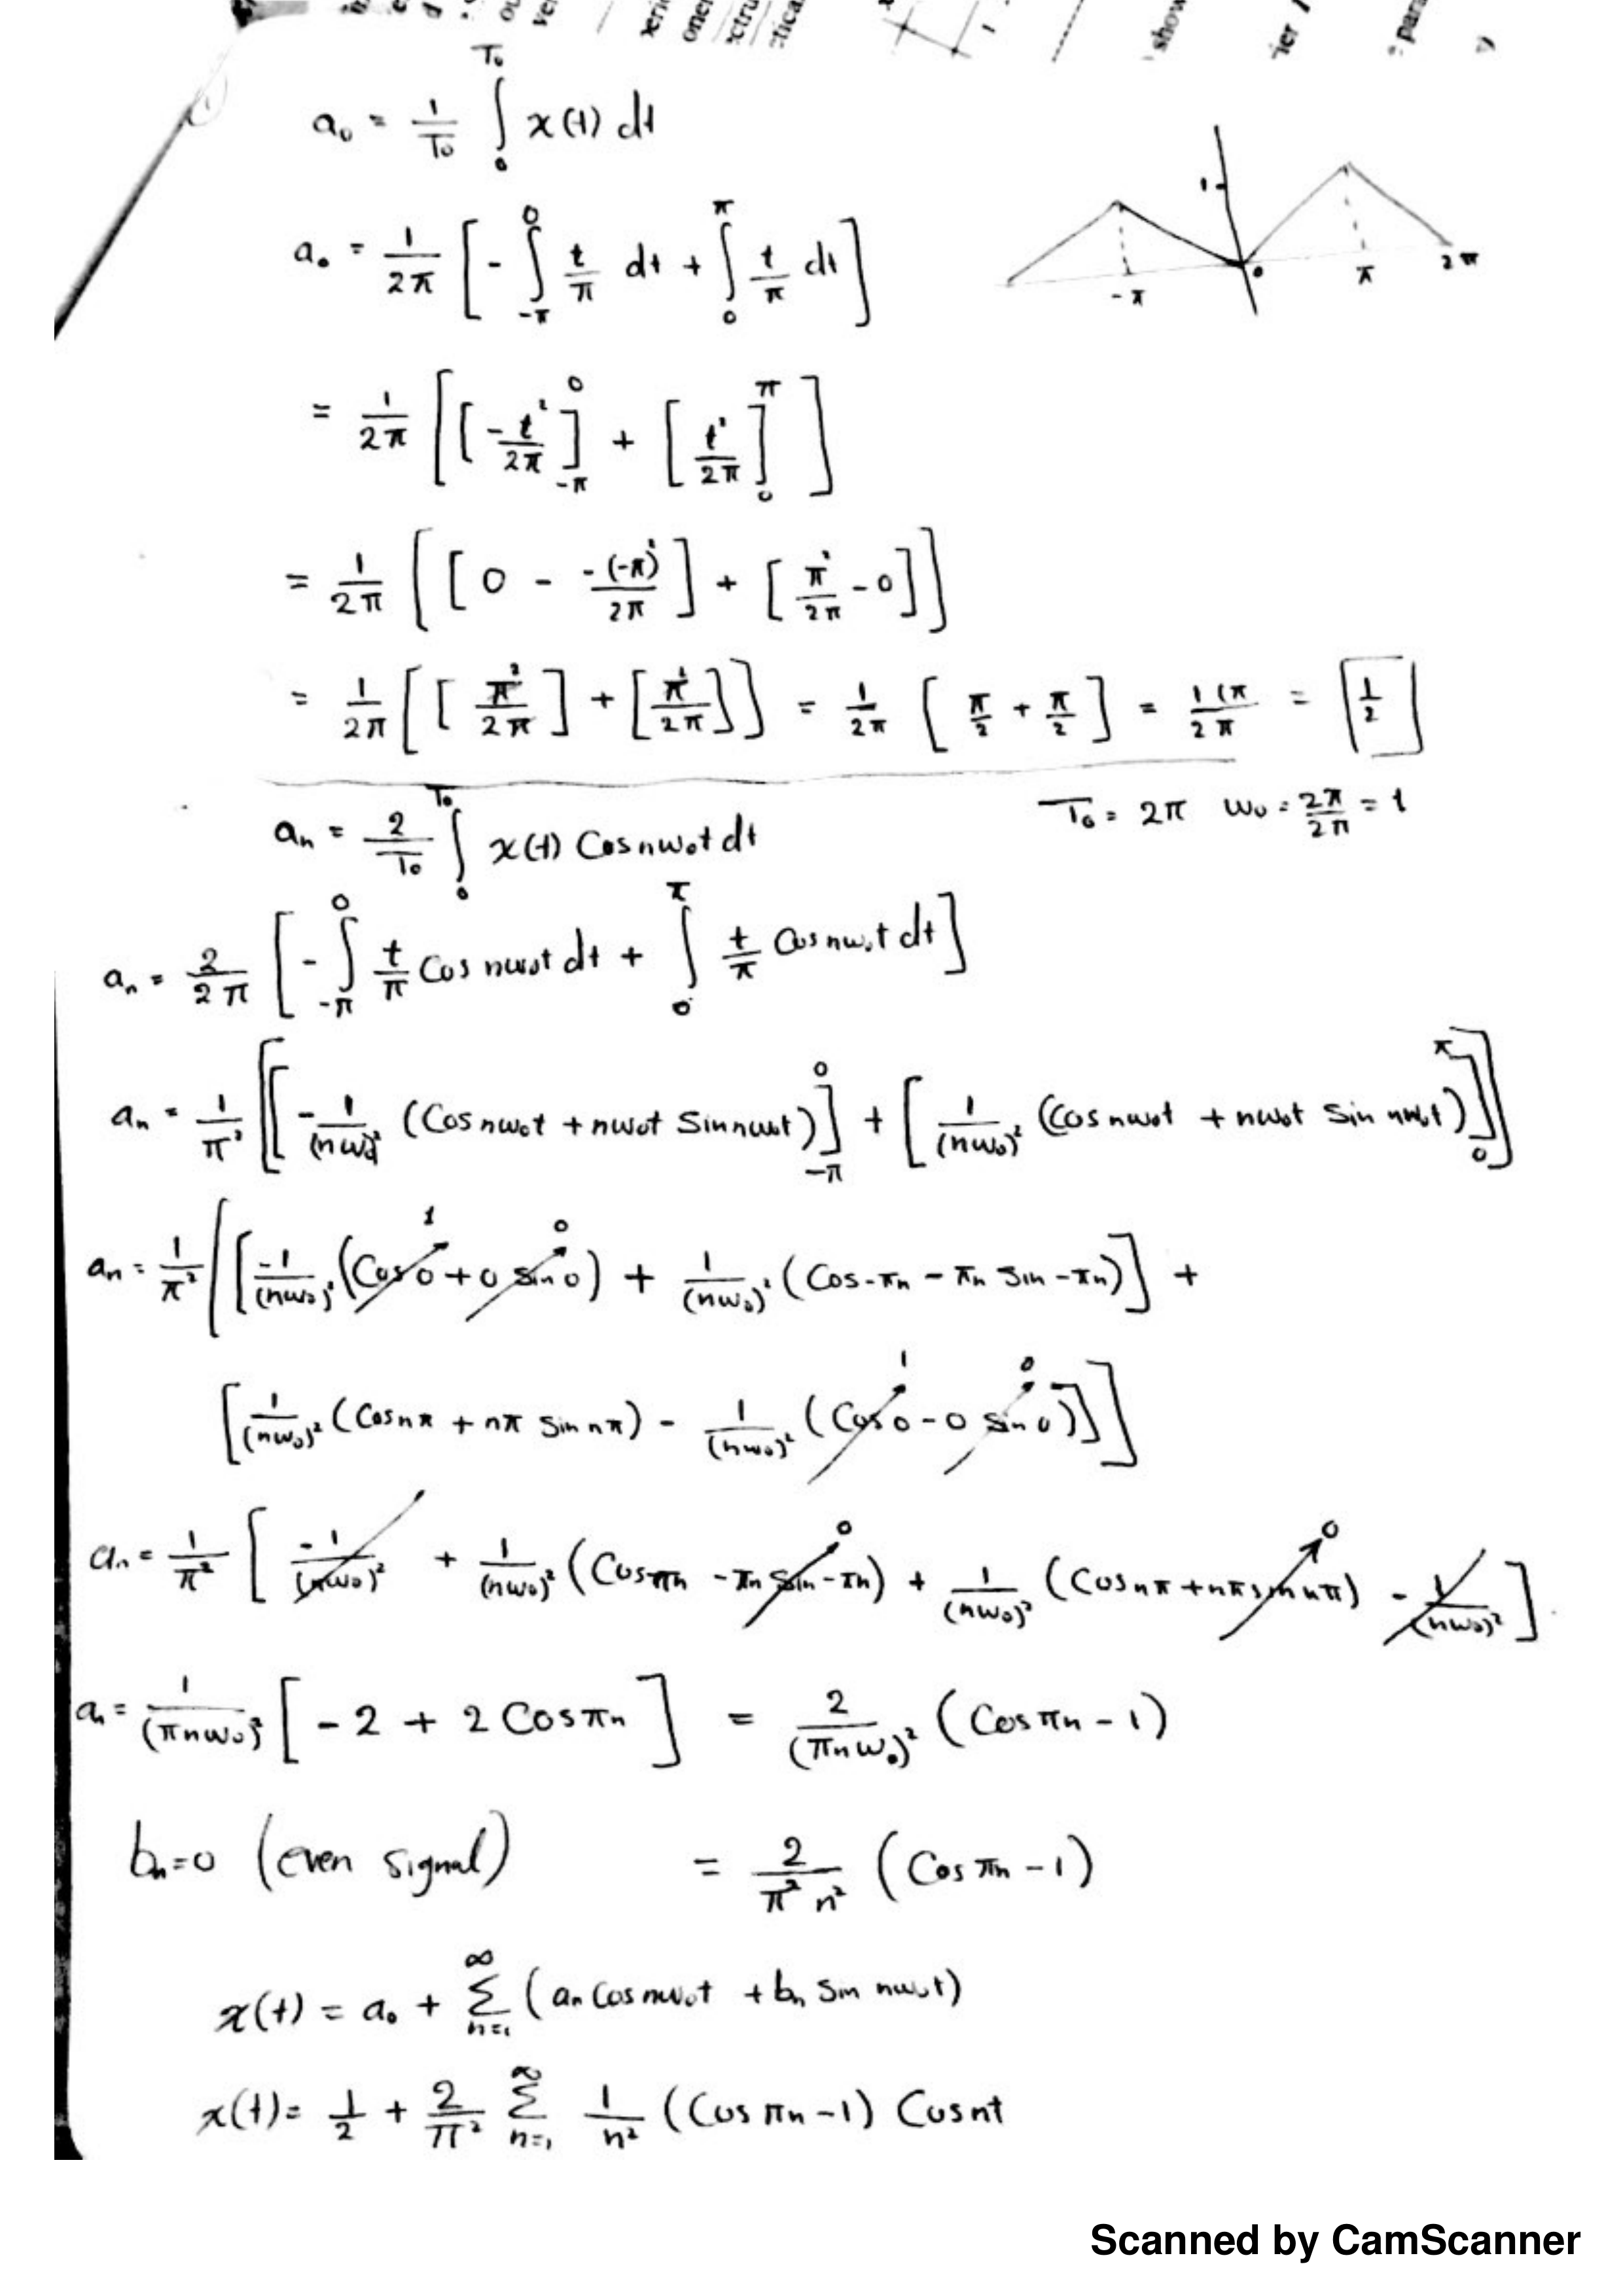 a₀ = 1/T₀ ∫₀^T₀ x(t) dt
1
-π 0 π 2π
a₀ = 1/2π [ - ∫_-π^0 t/π dt + ∫_0^π t/π dt ]
= 1/2π [ [ -t²/2π ]_-π^0 + [ t²/2π ]_0^π ]
= 1/2π [ [ 0 - -(-π)²/2π ] + [ π²/2π - 0 ] ]
= 1/2π [ [ π²/2π ] + [ π²/2π ] ] = 1/2π [ π/2 + π/2 ] = 1(π/2π = 1/2
T₀ = 2π w₀ = 2π/2π = 1
aₙ = 2/T₀ ∫₀^T₀ x(t) Cos nw₀t dt
aₙ = 2/2π [ - ∫_-π^0 t/π Cos nw₀t dt + ∫_0^π t/π Cos nw₀t dt ]
aₙ = 1/π² [ [ -1/(nw₀)² (Cos nw₀t + nw₀t Sin nw₀t) ]_-π^0 + [ 1/(nw₀)² (Cos nw₀t + nw₀t Sin nw₀t) ]_0^π ]
aₙ = 1/π² [ [ -1/(nw₀)² (Cos 0 + 0 sin 0) + 1/(nw₀)² (Cos -πn - πn Sin -πn) ] +
1 0
[ 1/(nw₀)² (Cos nπ + nπ Sin nπ) - 1/(nw₀)² (Cos 0 - 0 sin 0) ] ]
1 0
aₙ = 1/π² [ -1/(nw₀)² + 1/(nw₀)² (Cos πn - πn Sin -πn) + 1/(nw₀)² (Cos nπ + nπ sin nπ) - 1/(nw₀)² ]
0 0
aₙ = 1/(πnw₀)² [ -2 + 2 Cos πn ] = 2/(πnw₀)² (Cos πn - 1)
bₙ = 0 (even signal) = 2/π² n² (Cos πn - 1)
x(t) = a₀ + Σ_n=1^∞ (aₙ Cos nw₀t + bₙ Sin nw₀t)
x(t) = 1/2 + 2/π² Σ_n=1^∞ 1/n² (Cos πn - 1) Cos nt
Scanned by CamScanner